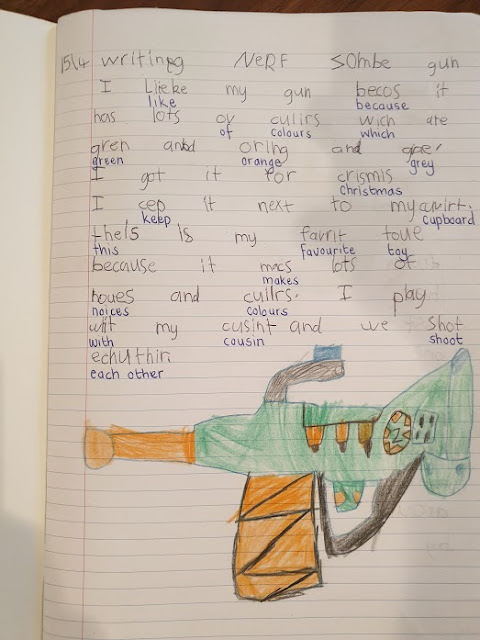 15/4 writing NERF Sombe gun
I Lieke my gun becos it
like because
has lots ov culirs wich are
of colours which
gren and oring and
green orange grey
I got it for crismis
Christmas
I cep it next to my
keep cupboard
theis is my favrit toue
this favourite toy
because it macs lots of
makes
noues and cullrs. I play
noices colours
wit my cusint and we shot
with cousin shoot
echuthir.
each other